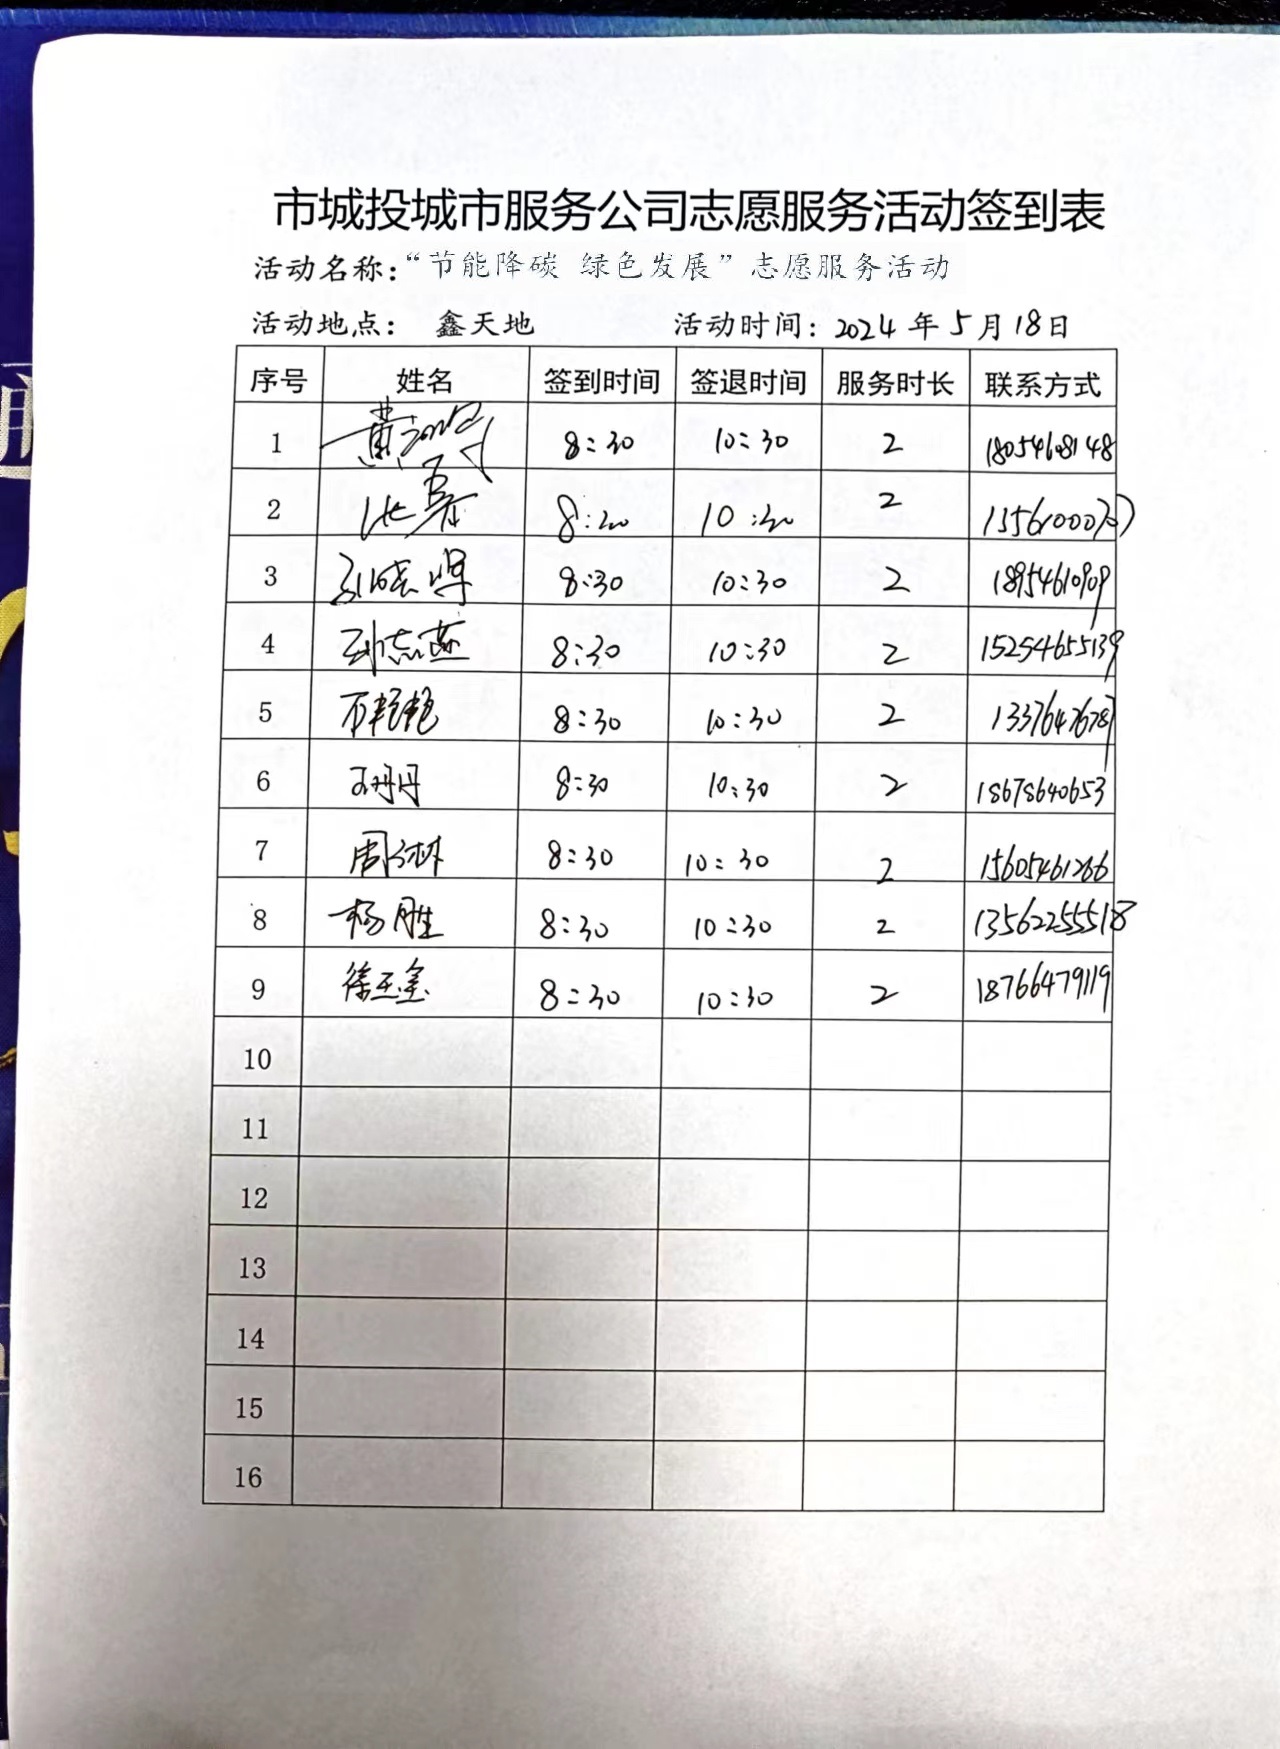 市城投城市服务公司志愿服务活动签到表
活动名称：“节能降碳 绿色发展”志愿服务活动
活动地点： 鑫天地 活动时间：2024年5月18日
序号 姓名 签到时间 签退时间 服务时长 联系方式
1 黄 8:30 10:30 2 18054608148
2 张春 8:30 10:30 2
3 8:30 10:30 2 18954610909
4 孙志燕 8:30 10:30 2 15254655139
5 石艳艳 8:30 10:30 2 13376476787
6 王丹丹 8:30 10:30 2 18678640653
7 周 林 8:30 10:30 2 15605461266
8 杨胜 8:30 10:30 2 13562255518
9 徐玉金 8:30 10:30 2 18766479119
10
11
12
13
14
15
16